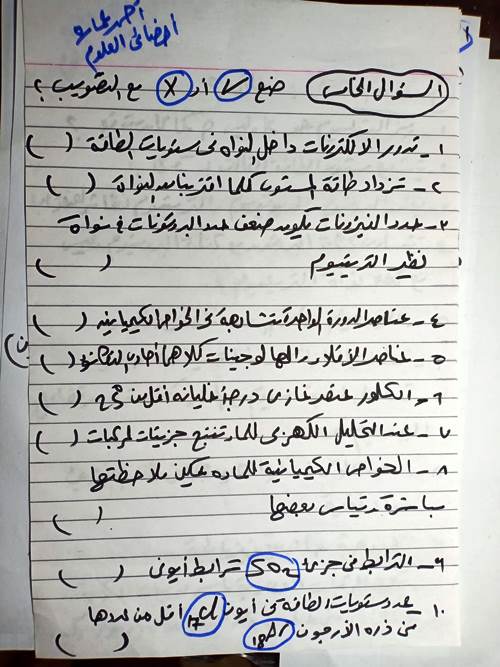 أحمد عماره
أخصائى العلوم
السؤال الخامس ضع √ أو X مع التصويب ؟
١- تدور الالكترونات داخل النواه فى مستويات الطاقة ( )
٢- تزداد طاقة المستوى كلما اقتربنا من النواة ( )
٣- عدد النيترونات يكون ضعف عدد البروتونات فى نواة
نظير التريتيوم ( )
٤- عناصر الدورة الواحدة متشابهة فى الخواص الكيميائيه ( )
٥- عناصر الأقلاء والهالوجينات كلاهما أحادى التكافؤ ( )
٦- الكلور عنصر غازى درجة غليانه أقل من ( )
٧- عند التحليل الكهربى للماء تنتج جزيئات مركبات ( )
٨- الخواص الكيميائية للماده يمكن ملاحظتها
مباشرة وقياس بعضها ( )
٩- الترابط فى جزئ SO₂ ترابط أيونى ( )
١٠- عدد مستويات الطاقة فى أيون ₁₇Cl أقل من عددها
فى ذره الأرجون ₁₈Ar ( )